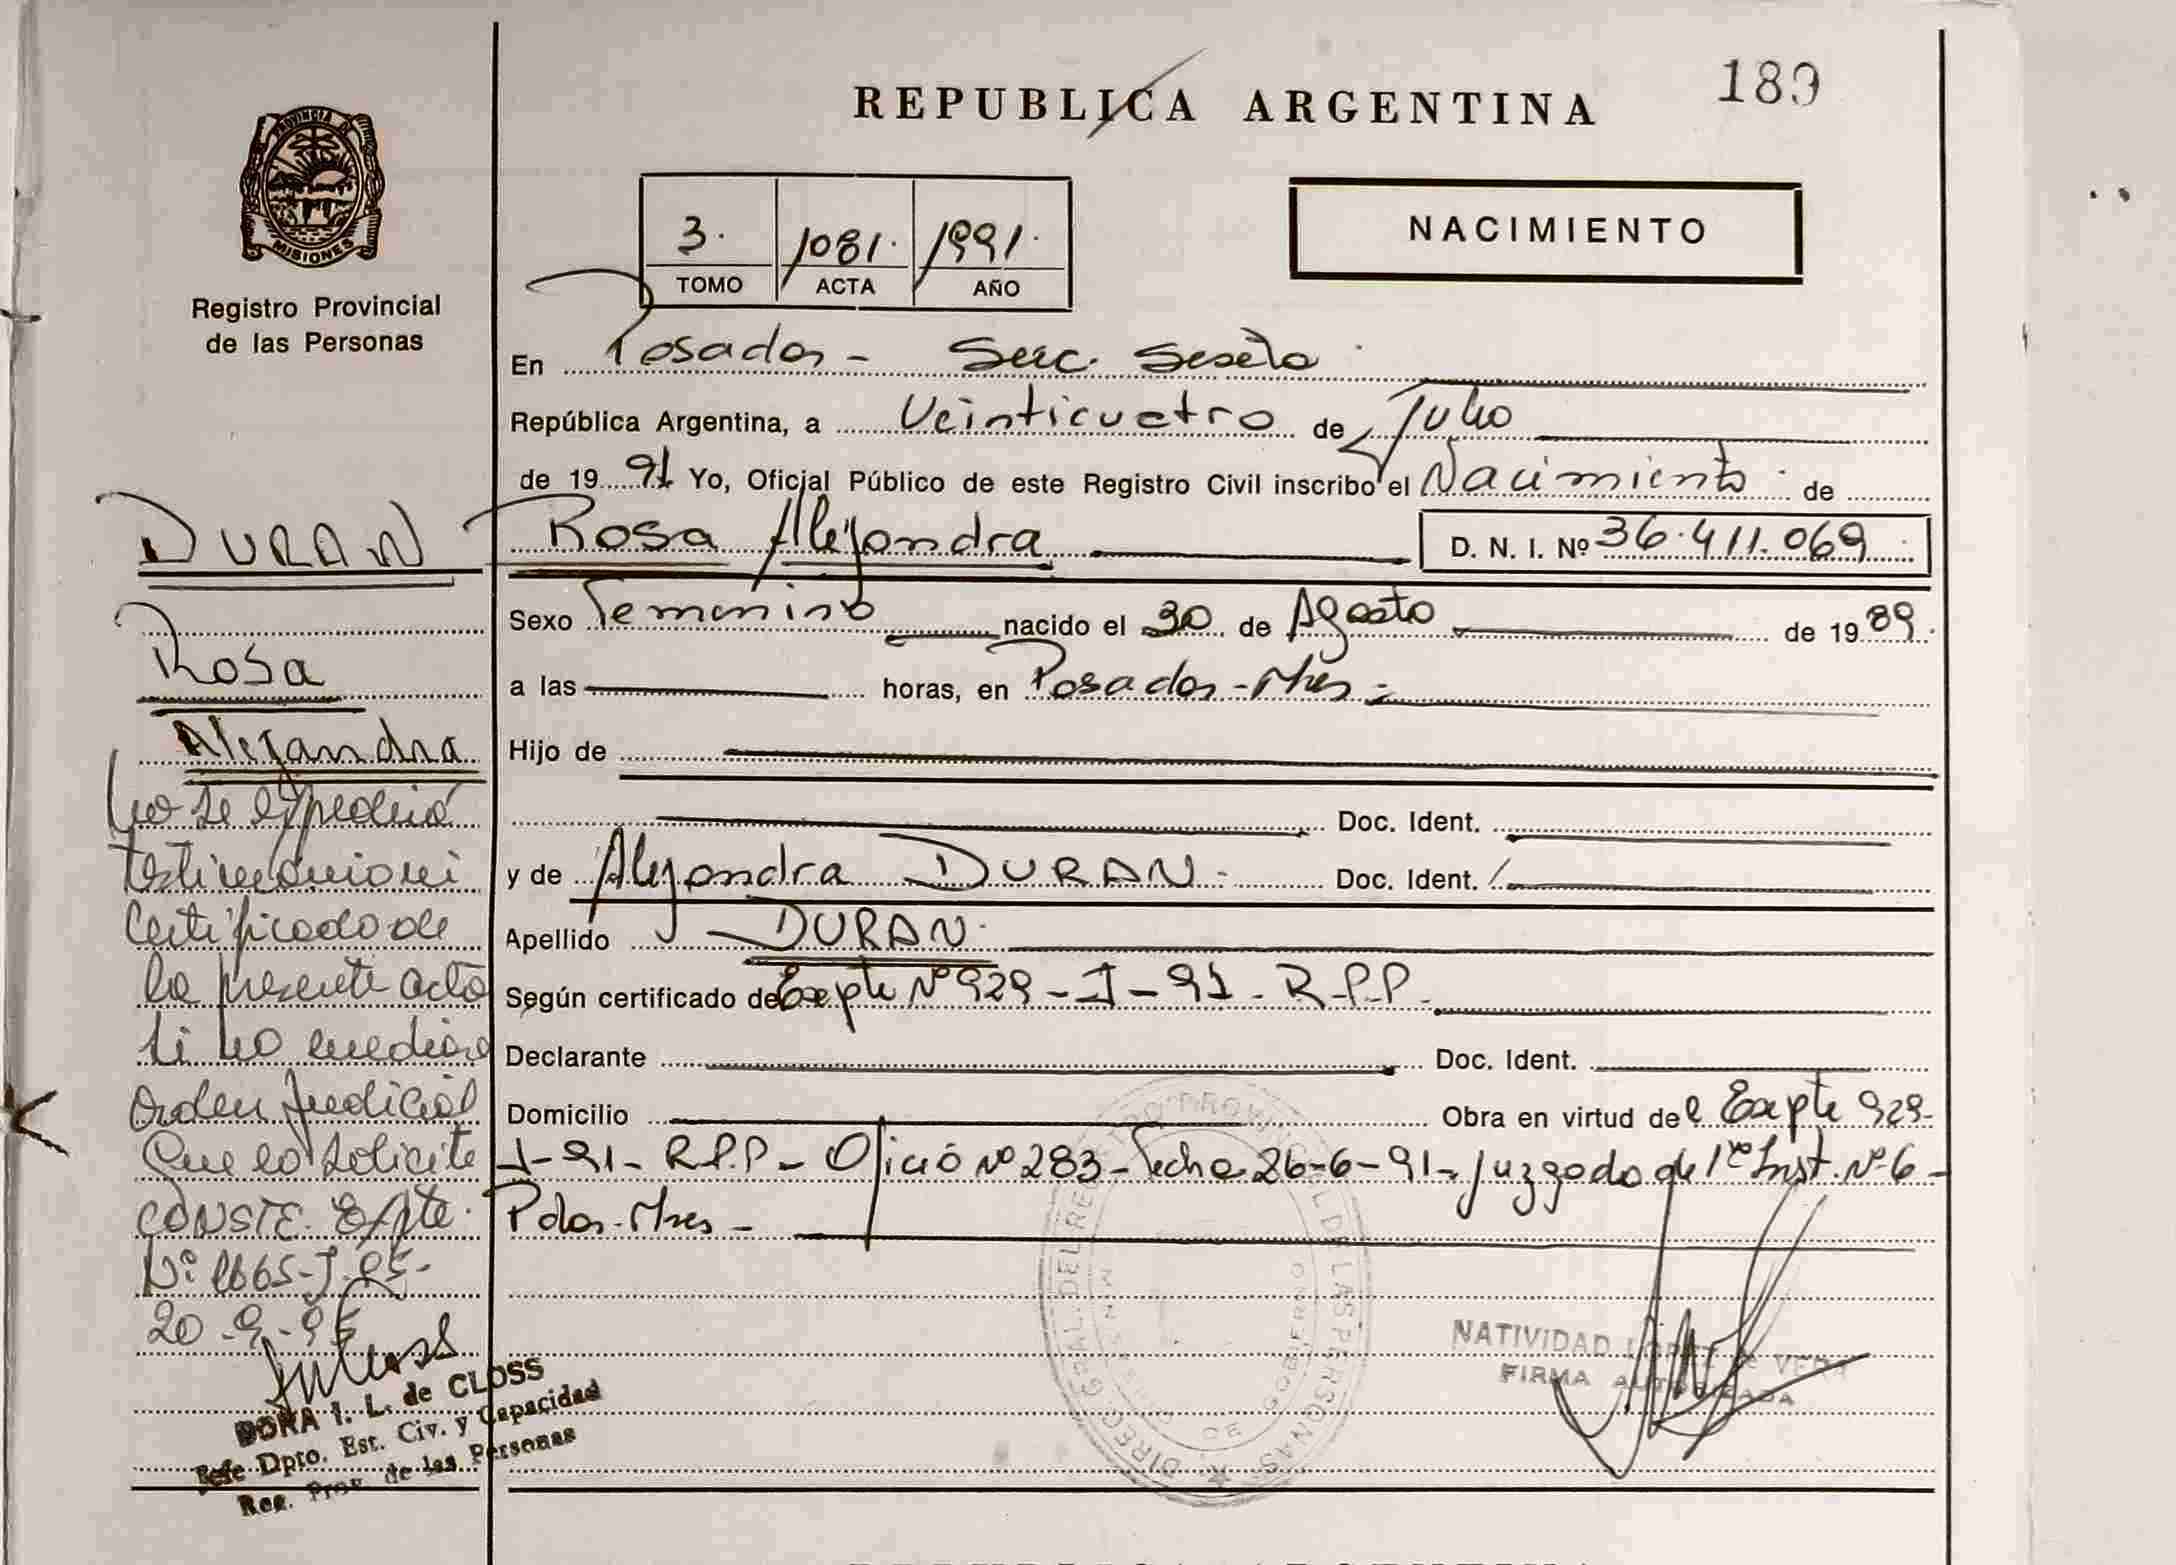 REPUBLICA ARGENTINA
189
PROVINCIA DE
MISIONES
Registro Provincial
de las Personas
3. 1081. 1991.
TOMO ACTA AÑO
NACIMIENTO
En Posadas - Secc. Sexta
República Argentina, a Veinticuatro de Julio
de 19 91 Yo, Oficial Público de este Registro Civil inscribo el Nacimiento de
Rosa Alejandra D. N. I. Nº 36.411.069
Sexo Femenino nacido el 30 de Agosto de 19 89
a las horas, en Posadas - Mnes -
Hijo de
Doc. Ident.
y de Alejandra DURAN - Doc. Ident.
Apellido DURAN.
Según certificado de Expte Nº 929 - J - 91 - R.P.P.
Declarante Doc. Ident.
Domicilio Obra en virtud de l Expte 929-
J-91- R.P.P - Oficio Nº 283 - Fecha 26-6-91 - Juzgado de 1ra Inst. Nº 6 -
Pdas - Mnes -
DURAN
Rosa
Alejandra
No se expedirá
testimonio ni
certificado de
la presente acta
si no mediara
Orden Judicial
que lo solicite
CONSTE. Expte.
Nº 1665-J-95-
20-9-95
DORA I. L. de CLOSS
Jefe Dpto. Est. Civ. y Capacidad
Reg. Prov. de las Personas
DIREC. GRAL. DEL REGISTRO PROVINCIAL DE LAS PERSONAS
MINISTERIO DE GOBIERNO
NATIVIDAD LOPEZ de VERA
FIRMA AUTORIZADA